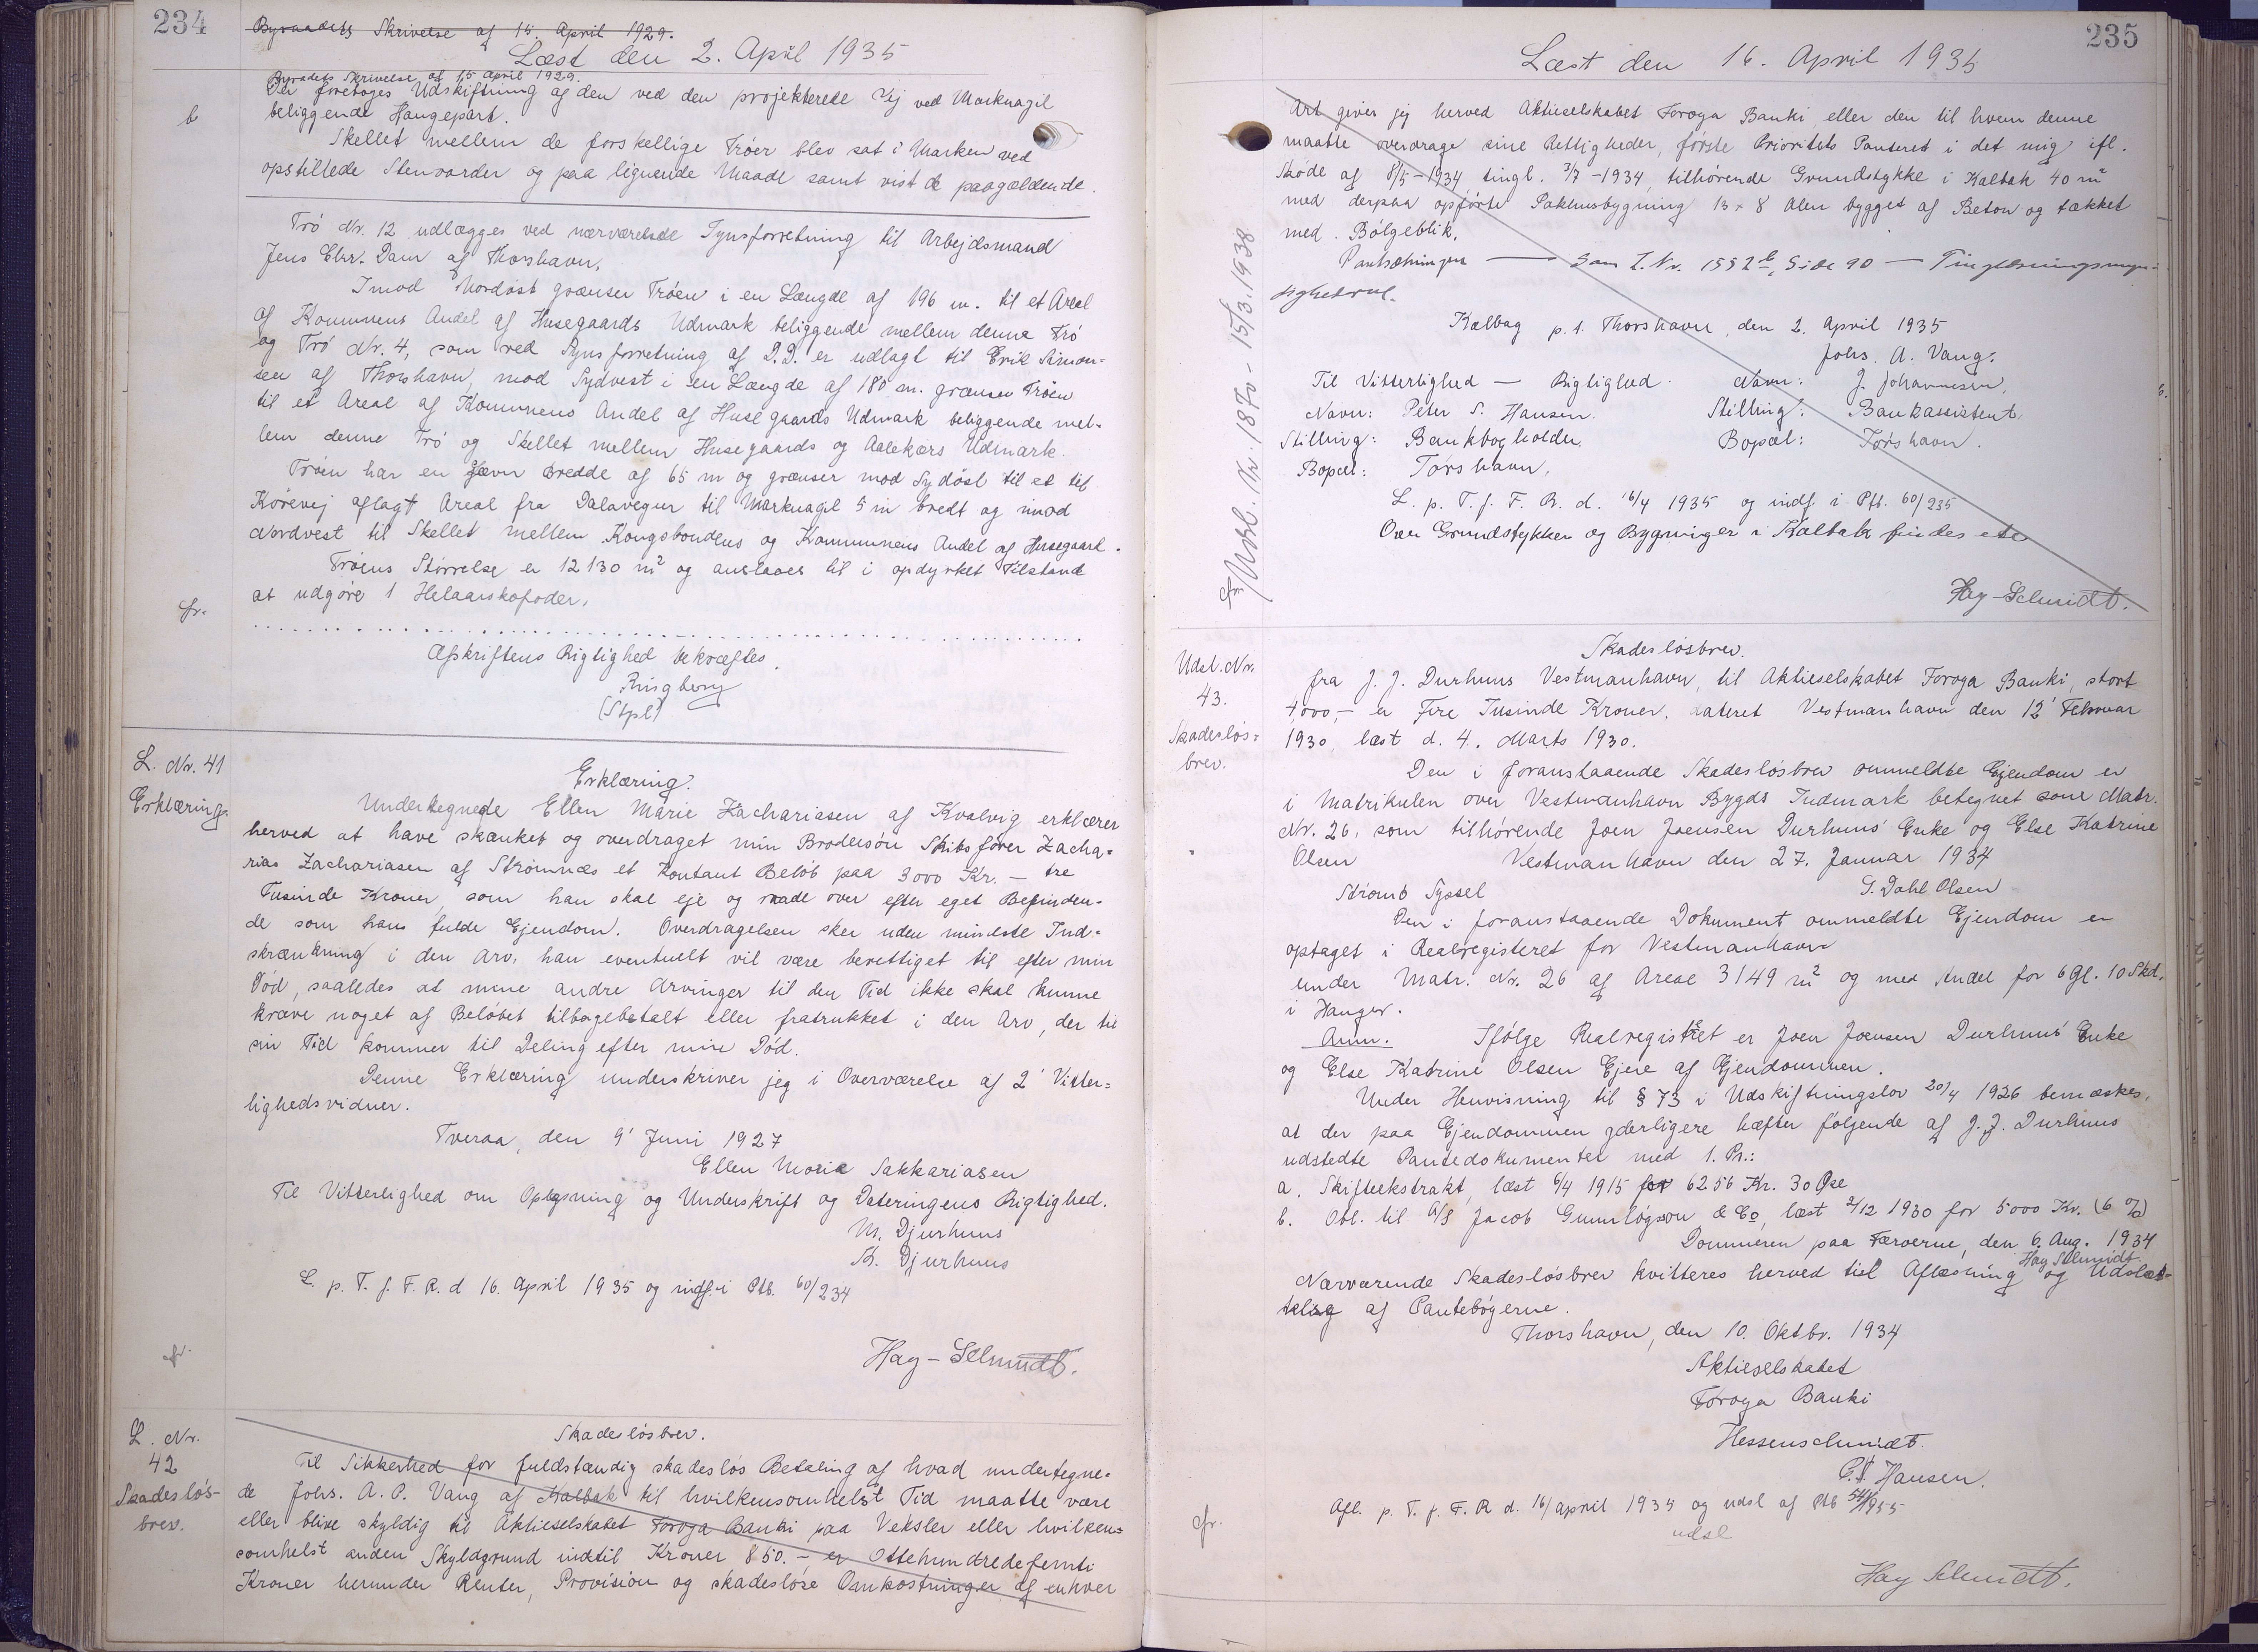 234
Byraadets Skrivelse af 15. April 1929.
Læst den 2. April 1935
Byradets Skrivelse af 15 April 1929.
Der foretoges Udskiftning af den ved den projekterede Vej ved Marknagil
b
beliggende Haugepart.
Skellet mellem de forskellige Tróer blev sat i Marken ved
opstillede Stenvarder og paa lignende Maade samt vist de paagældende.
Tró Nr. 12 udlægges ved nærværelsde Synsforretning til Arbejdsmand
Jens Chr. Dam af Thorshavn.
Imod Nordöst grænser Tróen i en Længde af 196 m. til et Areal
af Kommunens Andel af Husegaards Udmark beliggende mellem denne Tró
og Tró Nr. 4, som ved Synsforretning af D.D. er udlagt til Erik Simon-
sen af Thorshavn, mod Sydvest i en Længde af 180 m. grænser Tróen
til et Areal af Kommunens Andel af Husegaards Udmark beliggende mel-
lem denne Tró og Skellet mellem Husegaards og Aalekærs Udmark.
Tróen har en jævn Bredde af 65 m og grænser mod Sydöst til et til
Körevej aflagt Areal fra Dalavegur til Marknagil 5 m bredt og imod
Nordvest til Skellet mellem Kongsbondens og Kommunens Andel af Husegaard.
Tróens Störrelse er 12130 m² og anslaaes til i opdyrket Tilstand
at udgöre 1 Helaarskofoder.
cfr.
Afskriftens Rigtighed bekræftes.
Ringberg
(Stpl)
L. Nr. 41
Erklæring.
Erklæring.
Undertegnede Ellen Marie Zachariasen af Kvalvig erklærer
herved at have skænket og overdraget min Brodersön Skibsförer Zacha-
rias Zachariasen af Strömnæs et Kontant Belöb paa 3000 Kr. - tre
Tusinde Kroner, som han skal eje og raade over efter eget Befinden-
de som hans fulde Ejendom. Overdragelsen sker uden mindste Ind-
skrænkning i den Arv, han eventuelt vil være berettiget til efter min
Död, saaledes at mine andre Arvinger til den Tid ikke skal kunne
kræve noget af Belöbet tilbagebetalt eller fratrukket i den Arv, der til
sin Tid kommer til Deling efter min Död.
Denne Erklæring underskriver jeg i Overværelse af 2 Vitter-
lighedsvidner.
Tveraa, den 9' Juni 1927
Ellen Marie Sakkariasen
Til Vitterlighed om Oplysning og Underskrift og Dateringens Rigtighed.
M. Djurhuus
Th. Djurhuus
L. p. T. f. F. R. d 16. April 1935 og indf. i Ptb. 60/234
cfr.
Hay-Schmidt.
L. Nr.
42
Skadeslös-
brev.
Skadeslösbrev.
Til Sikkerhed for fuldstændig skadeslös Betaling af hvad undertegne-
de Johs. A. P. Vang af Kalbak til hvilkensomhelst Tid maatte være
eller blive skyldig til Aktieselskabet Foroya Banki paa Veksler eller hvilken-
somhelst anden Skyldgrund indtil Kroner 850. - er Ottehundredefemti
Kroner herunder Renter, Provision og skadeslöse Omkostninger af enhver
235
Læst den 16. April 1935
Art giver jeg herved Aktieselskabet Foroya Banki eller den til hvem denne
maatte overdrage sine Rettigheder, förste Prioritets Panteret i det mig ifl.
Sköde af 8/5-1934 tingl. 3/7-1934, tilhörende Grundstykke i Kalbak 40 m²
med derpaa opförte Pakhusbygning 13 x 8 Alen bygget af Beton og tækket
med Bölgeblik.
Pantsætningen — som L. Nr. 1552 b, Side 90 — Tinglæsningsmyn-
dighed rul.
Kalbag p. t. Thorshavn, den 2. April 1935
Johs. A. Vang.
Til Vitterlighed — Rigtighed.
Navn: J. Johannesen,
Navn: Peter S. Hansen.
Stilling: Bankassistent.
Stilling: Bankbogholder.
Bopæl: Tórshavn.
Bopæl: Tórshavn.
L. p. T. f. F. R. d. 16/4 1935 og indf. i Ptb. 60/235
Over Grundstykker og Bygninger i Kalbak findes ete
Hay-Schmidt.
cfr. Udsl. Nr. 187 - 15/3. 1938
Udsl. Nr.
43.
Skadeslös-
brev.
Skadeslösbrev.
fra J. J. Durhuus Vestmanhavn, til Aktieselskabet Foroya Banki, stort
4000,- er Fire Tusinde Kroner, dateret Vestmanhavn den 12' Februar
1930, læst d. 4. Marts 1930.
Den i foranstaaende Skadeslösbrev ommeldte Ejendom er
i Matrikulen over Vestmanhavn Bygds Indmark betegnet som Matr.
Nr. 26, som tilhörende Joen Joensen Durhuus' Enke og Else Katrine
Olsen
Vestmanhavn den 27. Januar 1934
Strömö Syssel
S. Dahl Olsen
Den i foranstaaende Dokument ommeldte Ejendom er
optaget i Realregisteret for Vestmanhavn
under Matr. Nr. 26 af Areal 3149 m² og med Andel for 6 Gl. 10 Skd.
i Hauger.
Anm. Ifölge Realregistret er Joen Joensen Durhuus' Enke
og Else Katrine Olsen Ejere af Ejendommen.
Under Henvisning til § 73 i Udskiftningslov 20/4 1926 bemærkes,
at der paa Ejendommen yderligere hæfter fölgende af J. J. Durhuus
udstedte Pantedokumenter med 1. Pr.:
a. Skifteekstrakt, læst 6/4 1915 for 6256 Kr. 30 Öre
b. Obl. til A/S Jacob Gunnlögson & Co, læst 2/12 1930 for 5000 Kr. (6 %)
Dommeren paa Færoerne, den 6. Aug. 1934
Hay Schmidt.
Nærværende Skadeslösbrev kvitteres herved til Aflæsning og Udslæt-
telse af Pantebögerne.
Thorshavn, den 10. Oktbr. 1934
Aktieselskabet
Föroya Banki
Hessenschmidt.
C. Hansen.
cfr.
Afl. p. T. f. F. R d. 16/april 1935 og udsl af Ptb
udsl
Hay Schmidt.